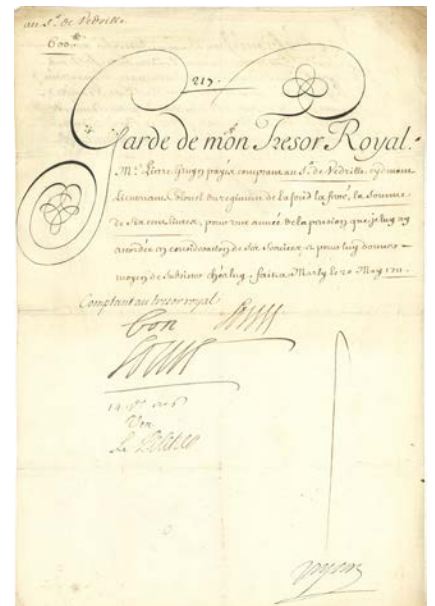 au S.^r de Vedrille
600^tt
217.
Garde de mon Tresor Royal.
M.^e Pierre payez comptant au S.^r de Vedrille, cydevant
Lieutenant Colonel du regiment de la la somme
de Six cens livres, pour une année de la pension que je luy ay
accordée en consideration de ses services, et pour luy donner
moyen de Subsister chez luy. fait a Marly le 20 May 1711.
Comptant au tresor royal
bon Louis
Louis
14
Veu
Le